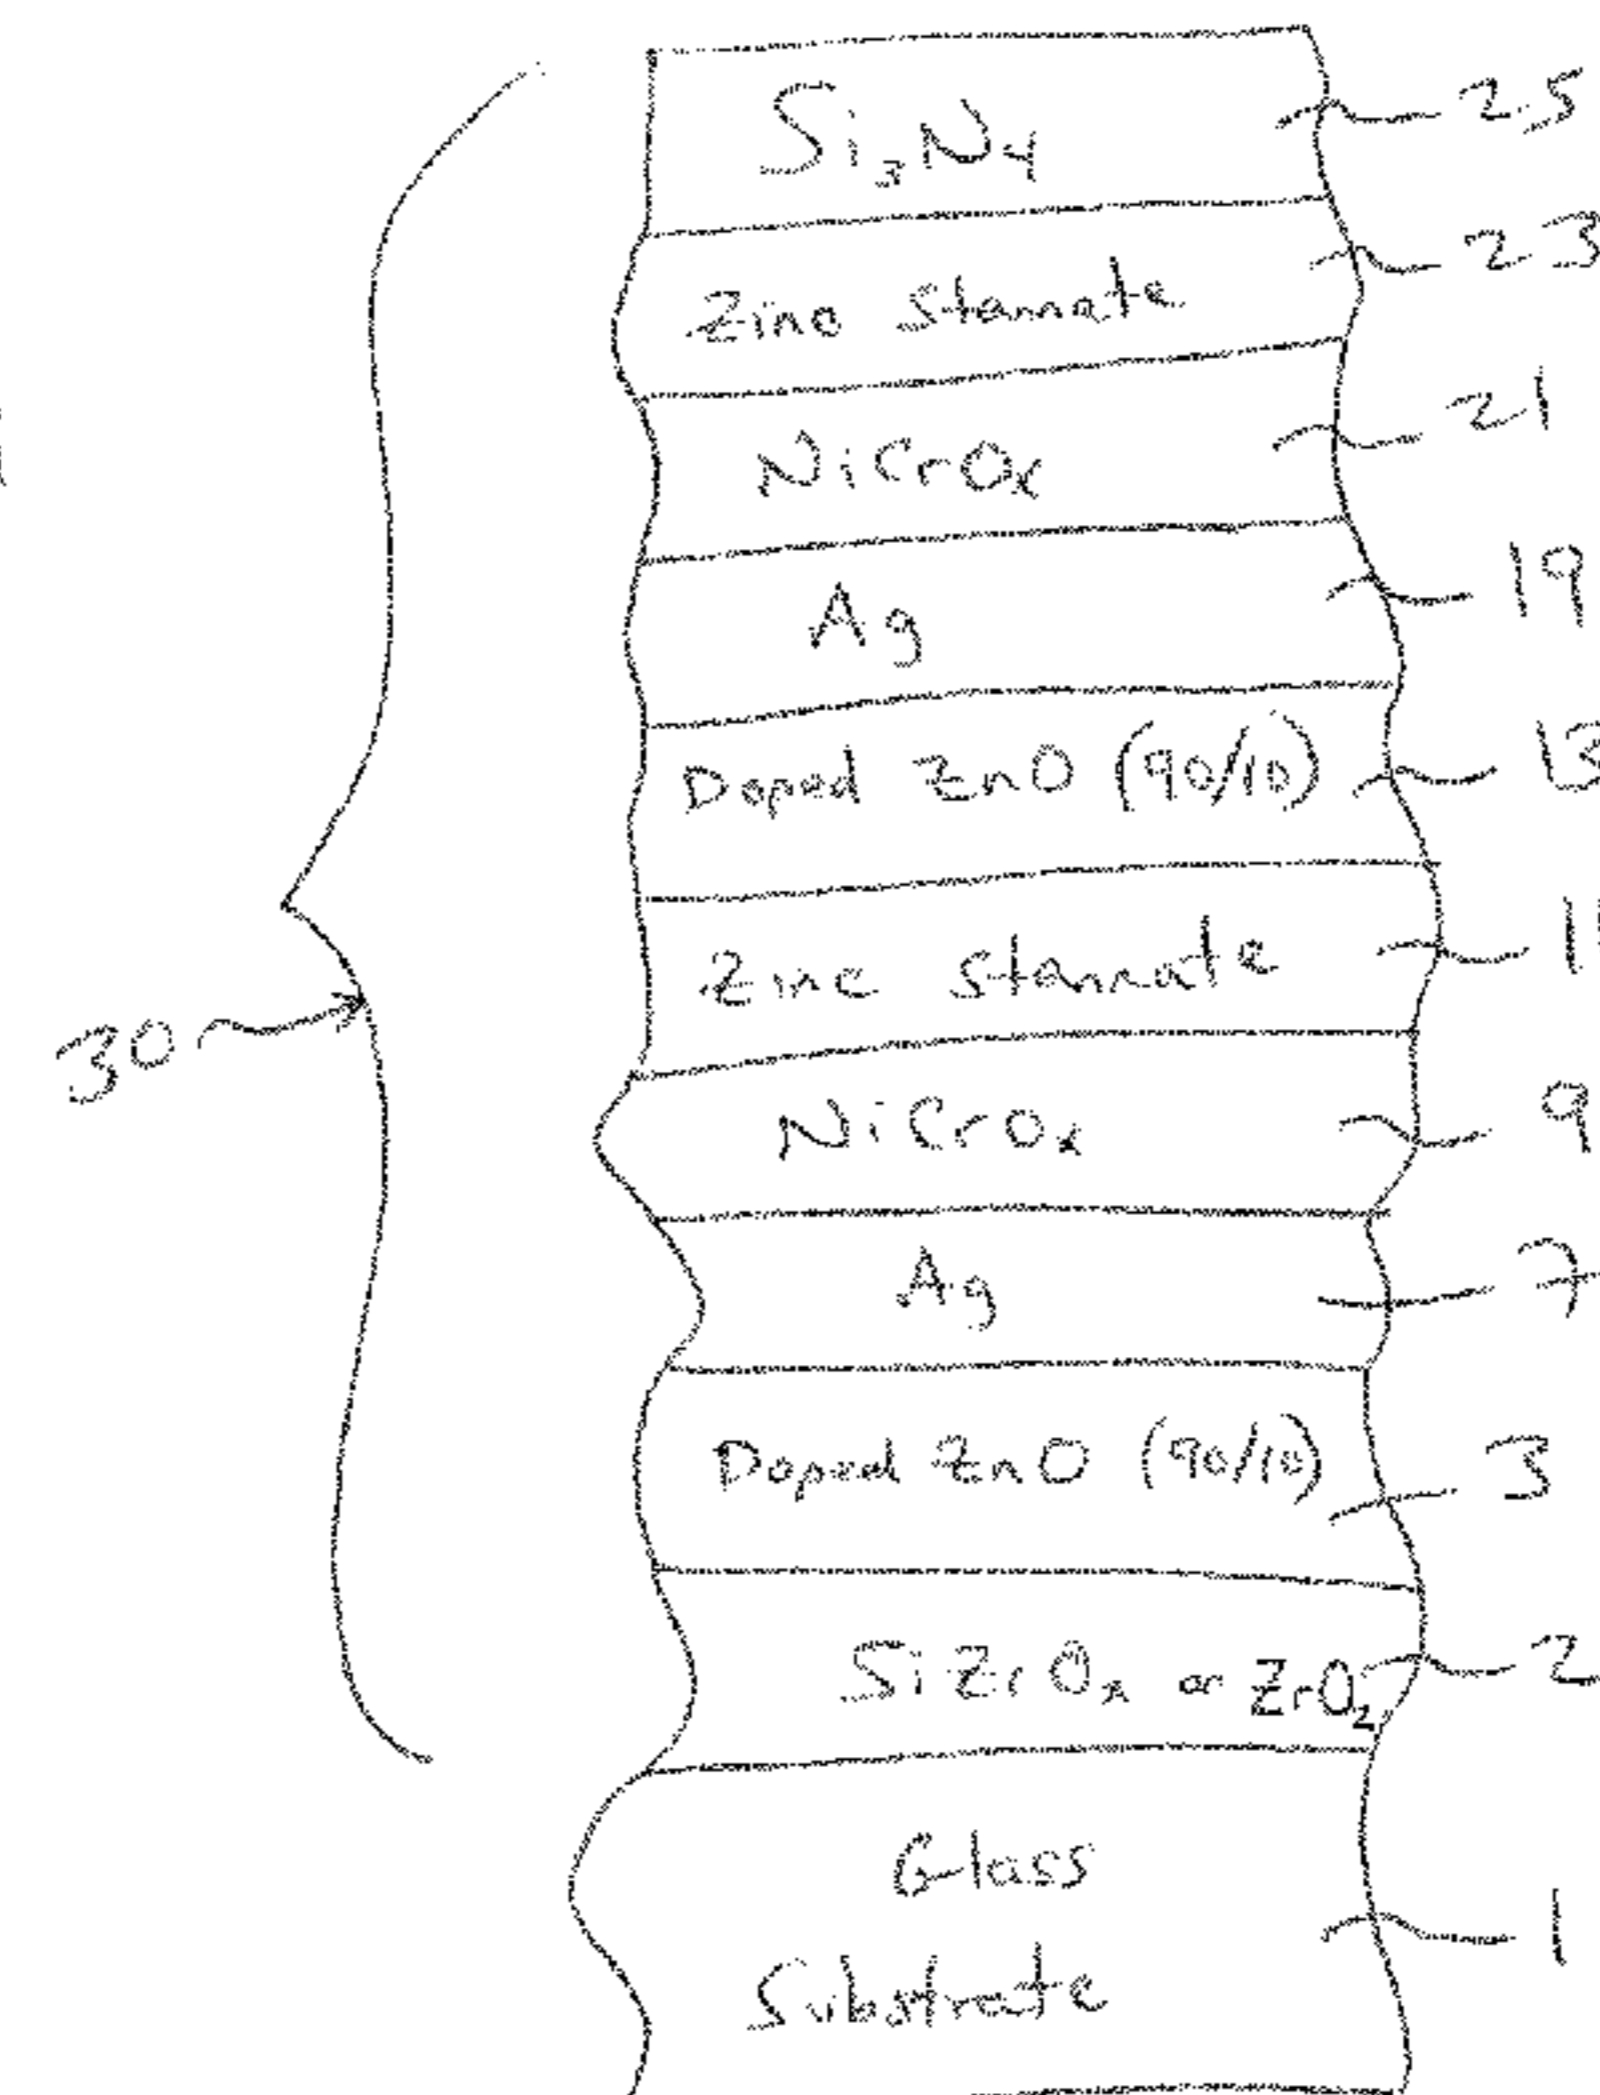 Si3N4 25
Zinc Stannate 23
NiCrOx 21
Ag 19
Doped ZnO (90/10) 13
Zinc Stannate
NiCrOx 9
Ag 7
Doped ZnO (90/10) 3
SiZrOx or ZrO2 2
Glass
Substrate 1
30